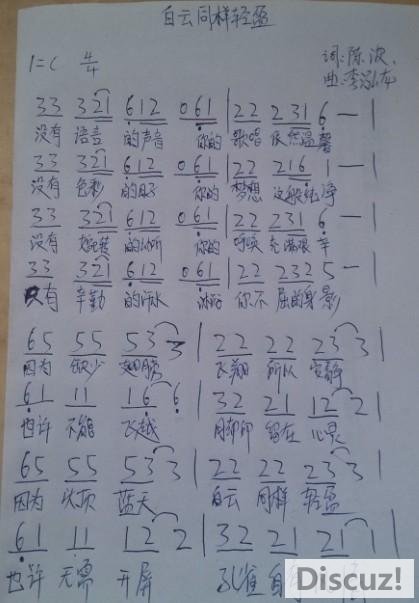 白云同样轻盈
1=C 4/4
词:陈波
曲:李泓龙
33 321 612 061 | 22 231 6 — |
没有 语言 的声音 你的 歌唱 依然温馨
33 321 612 061 | 22 216 1 — |
没有 色彩 的日子 你的 梦想 这般纯净
33 321 612 061 | 22 231 6 — |
没有 的 你的 呼唤 充满艰辛
33 321 612 061 | 22 232 5 — |
只有 辛勤 的汗水 沐浴 你不 屈的身影
65 55 53 3 | 22 22 23 3 |
因为 缺少 翅膀 飞翔 所以 安静
61 11 16 6 | 32 21 12 2 |
也许 不能 飞越 留在 心灵
65 55 53 3 | 22 22 23 3 |
因为 头顶 蓝天 白云 同样 轻盈
61 11 12 2 | 32 21 21 1 |
也许 无需 开屏 孔雀
Discuz!